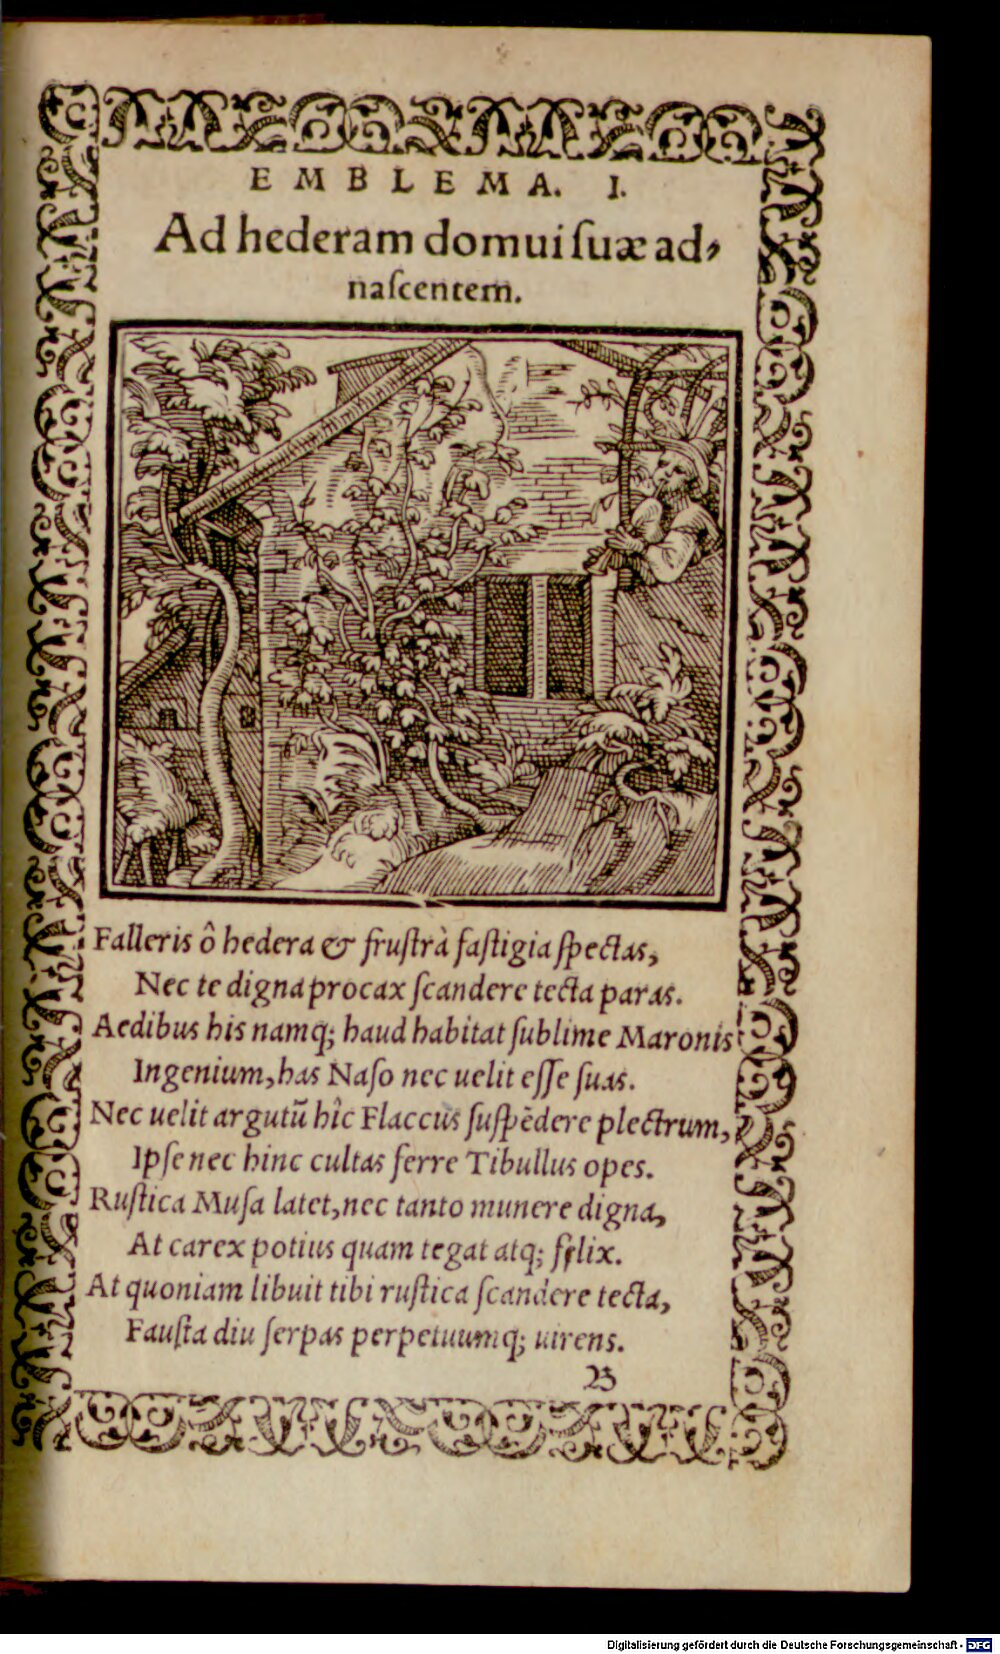 EMBLEMA. I.
Ad hederam domui ſuæ ad⸗
naſcentem.
Falleris ô hedera & fruſtrà faſtigia ſpectas,
Nec te digna procax ſcandere tecta paras.
Aedibus his namq; haud habitat ſublime Maronis
Ingenium, has Naſo nec uelit eſſe ſuas.
Nec uelit argutū hîc Flaccus ſuſpēdere plectrum,
Ipſe nec hinc cultas ferre Tibullus opes.
Ruſtica Muſa latet, nec tanto munere digna,
At carex potius quam tegat atq; filix.
At quoniam libuit tibi ruſtica ſcandere tecta,
Fauſta diu ſerpas perpetuumq; uirens.
B
Digitalisierung gefördert durch die Deutsche Forschungsgemeinschaft - DFG